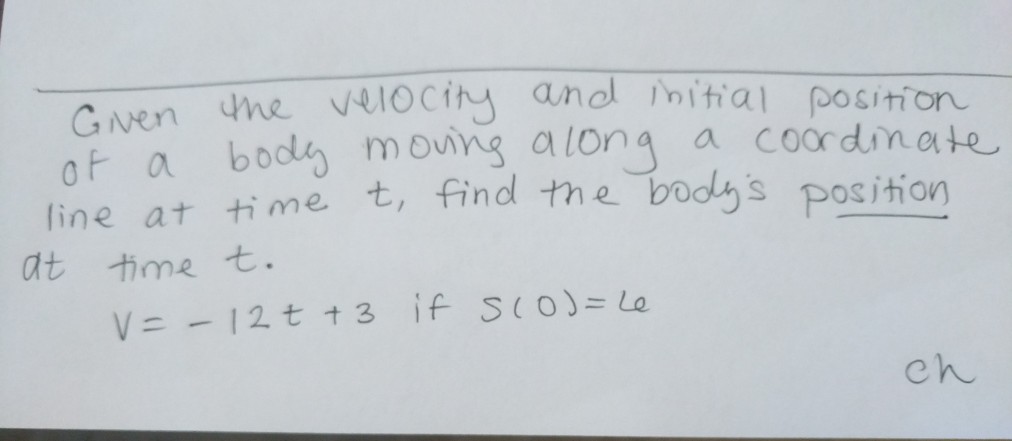 Given the velocity and initial position
of a body moving along a coordinate
line at time t, find the body's position
at time t.
V = - 12t + 3 if s(0) = 6
ch